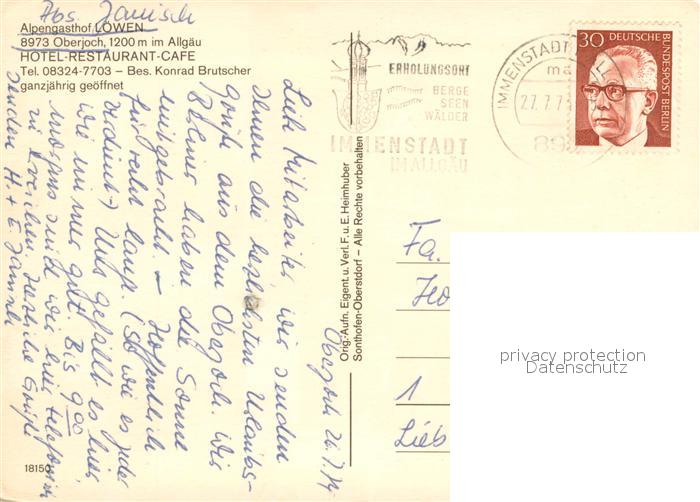 Abs. Janisch
Alpengasthof LÖWEN
8973 Oberjoch, 1200 m im Allgäu
HOTEL-RESTAURANT-CAFE
Tel. 08324-7703 – Bes. Konrad Brutscher
ganzjährig geöffnet
Oberjoch 26.7.74
Liebe Mitarbeiter, wir senden
Ihnen die herzlichsten Urlaubs-
grüße aus dem Oberjoch. Wir
Berliner haben die Sonne
mitgebracht. – Hoffentlich
für recht lange. (So wie es jeder
verdient.) Uns gefällt es hier
wie immer gut. Bis 9.00
morgens sind wir hier telefonisch
zu erreichen. Herzliche Grüße
senden H. + E. Janisch
18150
Orig.-Aufn. Eigent. u. Verl. F. u. E. Heimhuber
Sonthofen-Oberstdorf – Alle Rechte vorbehalten
ERHOLUNGSORT
BERGE
SEEN
WÄLDER
IMMENSTADT
IM ALLGÄU
IMMENSTADT
ma
27.7.7
89
30 DEUTSCHE
BUNDESPOST BERLIN
Fa.
1
Lieb
privacy protection
Datenschutz